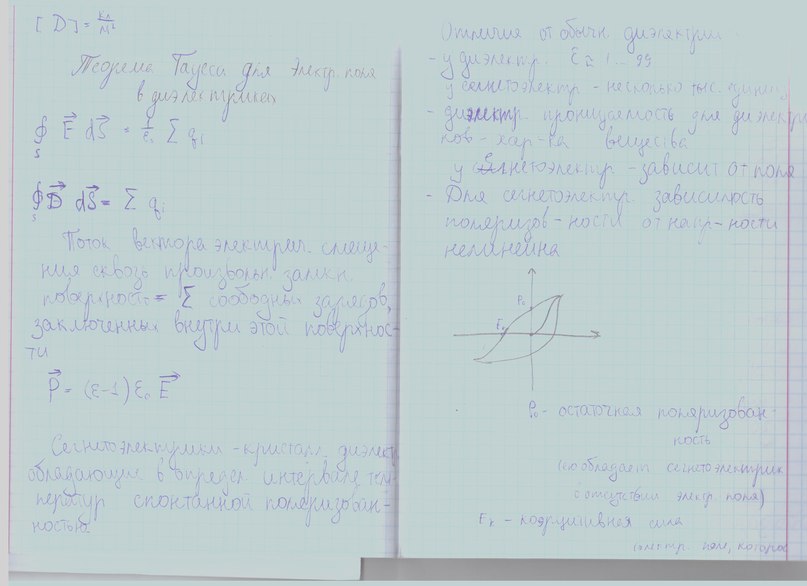 [D] = Кл/м²
Теорема Гаусса для электр. поля
в диэлектриках
∮ₛ E⃗ dS⃗ = 1/ε₀ Σ qᵢ
∮ₛ D⃗ dS⃗ = Σ qᵢ
Поток вектора электрич. смеще-
ния сквозь произвольн. замкн.
поверхность = Σ свободных зарядов,
заключенных внутри этой поверхнос-
ти
P⃗ = (ε-1) ε₀ E⃗
Сегнетоэлектрики - кристалл. диэлект
обладающие в определ. интервале тем-
ператур спонтанной поляризован-
ностью
Отличия от обычн. диэлектрич.
- у диэлектр. ε ≈ 1 ... 99
у сегнетоэлектр - несколько тыс. единиц
- диэлектр. проницаемость для диэлектри
ков - хар-ка вещества
у сегнетоэлектр - зависит от поля
- Для сегнетоэлектр. зависимость
поляризов-ности от напр-ности
нелинейна
P₀
Eк
P₀ - остаточная поляризован-
ность
обладает сегнетоэлектрик
в отсутствии электр. поля)
Eк - коэрцитивная сила
поле, которое